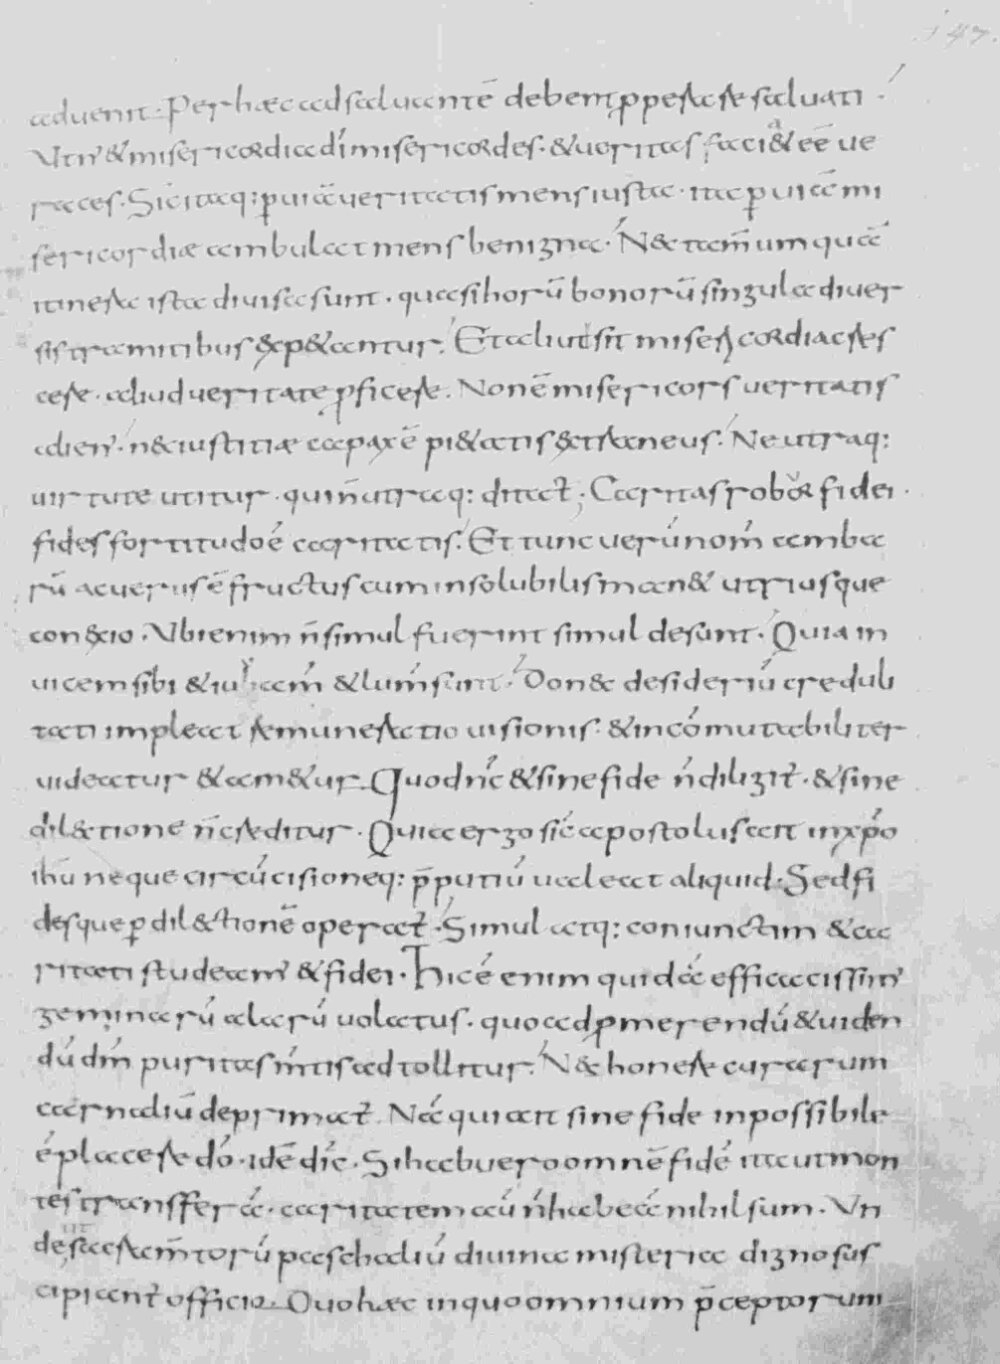 aduenit. Per hæc ad saluantē debent p̱perare saluati.
Utiq̄ & misericordia dī misericordes. & ueritas faciat eē ue
races. Sic itaq: p̱ uiā ueritatis mens iusta. ita p̱ uiā mi
sericordiæ ambulat mens benigna. Nec tam̄ umquā
itinera ista diuisa sunt. quasi horū bonorū singula diuer
sis tramitibus expetantur. Et aliud sit misericordia cres
cere. aliud ueritate p̱ficere. Non ē misericors ueritatis
alien'. nec iustitiæ capax ē pietatis extraneus. Ne utraq:
uirtute utitur. qui n̄ utraq: ditat̄. Caritas robor fidei.
fides fortitudo ē caritatis. Et tunc uerū nom̄ amba
rū ac uerus ē fructus cum insolubilis manet utriusque
conexio. Ubi enim n̄ simul fuerint simul desunt. Quia in
uicem sibi & iuuam̄ & lum̄ sunt. Donec desideriū creduli
tati impleat remuneratio uisionis. & incōmutabiliter
uideatur & ametur. Quod nc̄ & sine fide n̄ diligit̄. & sine
dilectione n̄ creditur. Quia ergo sic̄ apostolus ait in xp̄o
ihū neque circūcisio neq: p̄putiū ualeat aliquid. Sed fi
des que p̱ dilectionē operat̄. Simul atq: coniunctim & ca
ritati studeam' & fidei. Hic ē enim quidā efficacissim'
geminarū alarū uolatus. quo ad p̱merendū & uiden
dū dm̄ puritas m̄tis adtollitur. Nec honere curarum
carnaliū deprimat̄. Nā qui ait sine fide inpossibile
ē placere dō. idē dic̄. Si habuero omnē fidē ita ut mon
tes transferā. caritatem aū n̄ habeā nihil sum. Un
de ut sacram̄torū paschaliū diuina misteria digno sus
cipiant̄ officio. Duo hæc in quo omnium p̄ceptorum